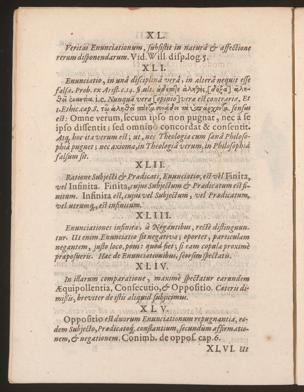 XL.
Veritas Enunciationum, subsistit in natura & affectione
rerum disponendarum. Vid. Will disp. log. 5.
XLI.
Enunciatio, in una disciplina vera, in altera nequit esse
falsa. Prob. ex Arist.
ἀληθεῖ i.e. Nunquam vera opinio vera est contraria, Et
1. Ethic. cap. 8. sensus
est: Omne verum, secum ipso non pugnat, nec à se
ipso dissentit: sed omnino concordat & consentit.
Atq, hoc ita verum est; ut, nec Theologicum cum Philoso-
phia pugnet; nec axioma, in Theologia verum, in Philosophia
falsum sit.
XLII.
Ratione Subjecti & Prædicati, Enunciatio, est vel Finita,
vel Infinita. Finita, cujus Subjectum & Prædicatum est fi-
nitum. Infinita est, cujus vel Subjectum, vel Prædicatum,
vel utrumq, est infinitum.
XLIII.
Enunciationes infinitæ, à Negantibus, rectè distinguun-
tur. Ut enim Enunciatio sit negativa; oportet, particulam
negantem, justo loco, poni: quod fiet; si eam copulæ proximè
præposueris. Hæc de Enunciationibus, seorsim spectatis.
XLIV.
In illarum comparatione, maximè spectatur earundem
Æquipollentia, Consecutio, & Oppositio. Cæteris di-
missis, breviter de istis aliquid subjicimus.
XLV.
Oppositio est duorum Enunciationum repugnantia, eo-
dem Subjecto, Prædicatoq, constantium, secundum affirmatio-
nem, & negationem. Conimb. de oppos. cap. 6.
XLVI. Ut